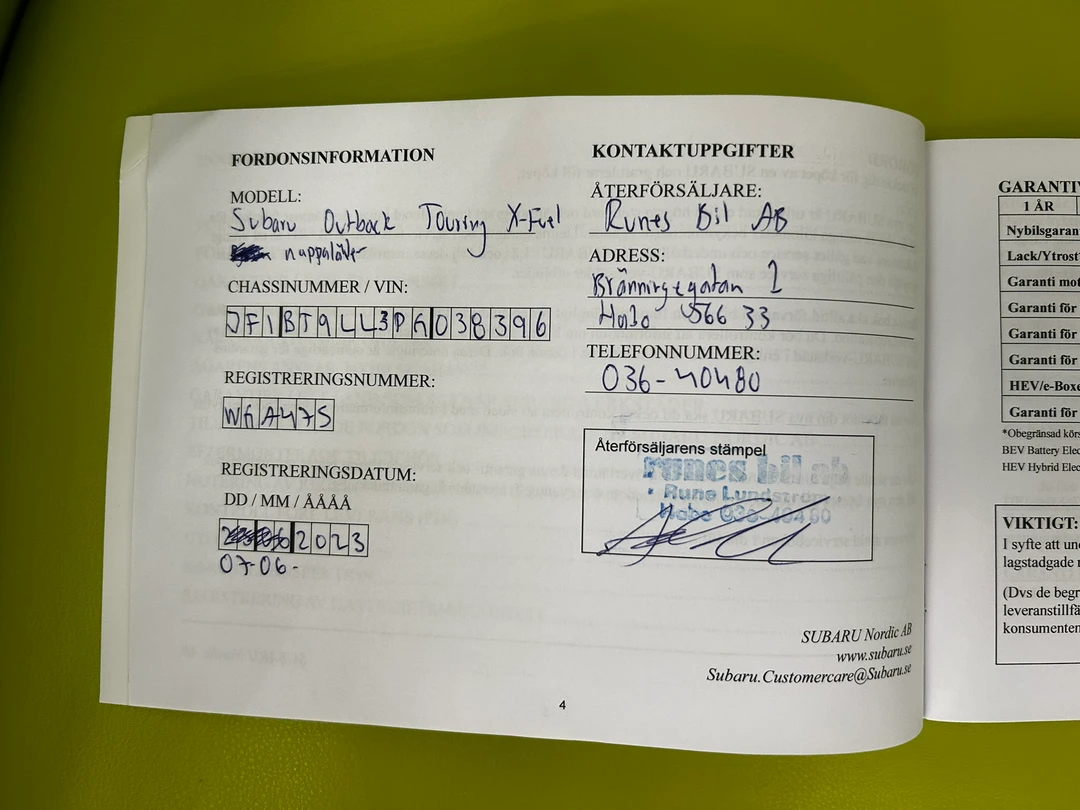 FORDONSINFORMATION
MODELL:
Subaru Outback Touring X-Fuel
nappaläder
CHASSINUMMER / VIN:
JF1BT9LL3PG038396
REGISTRERINGSNUMMER:
WGA47S
REGISTRERINGSDATUM:
DD / MM / ÅÅÅÅ
2023
07-06-
KONTAKTUPPGIFTER
ÅTERFÖRSÄLJARE:
Runes Bil AB
ADRESS:
Bränningegatan 1
Habo 566 33
TELEFONNUMMER:
036-40480
Återförsäljarens stämpel
runes bil ab
Rune Lundström
Habo 036-404 80
SUBARU Nordic AB
www.subaru.se
Subaru.Customercare@Subaru.se
4
GARANTI
1 ÅR
Nybilsgaran
Lack/Ytrost
Garanti mot
Garanti för
Garanti för
Garanti för
HEV/e-Boxe
Garanti för
*Obegränsad körs
BEV Battery Elec
HEV Hybrid Elec
VIKTIGT:
I syfte att un
lagstadgade r
(Dvs de begr
leveranstillfä
konsumenten